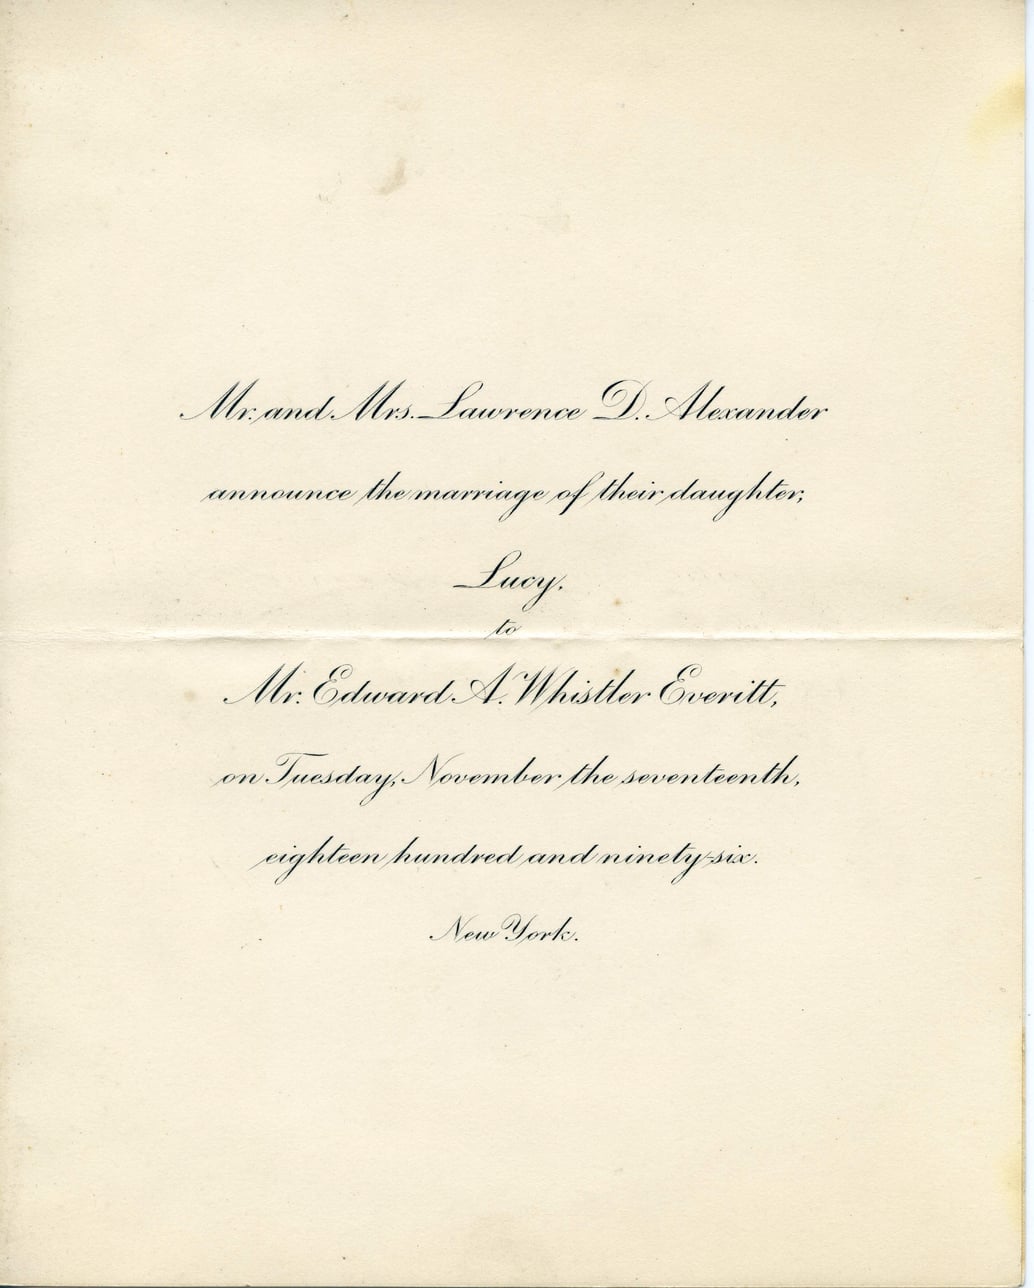 Mr. and Mrs. Lawrence D. Alexander
announce the marriage of their daughter,
Lucy,
to
Mr. Edward A. Whistler Everitt,
on Tuesday, November the seventeenth,
eighteen hundred and ninety-six.
New York.